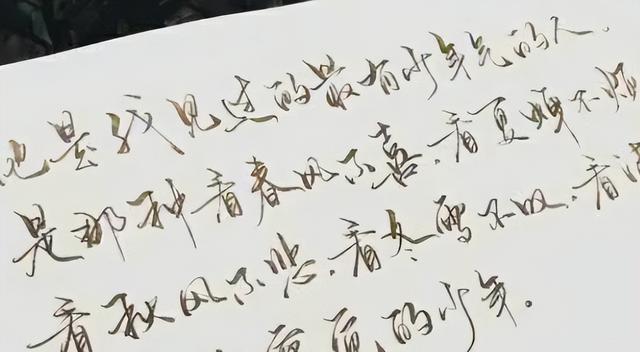 是我见过的最有少年气的人。
是那种看春风不喜，看夏蝉不烦
看秋风不悲，看冬雪不叹，看
的少年。